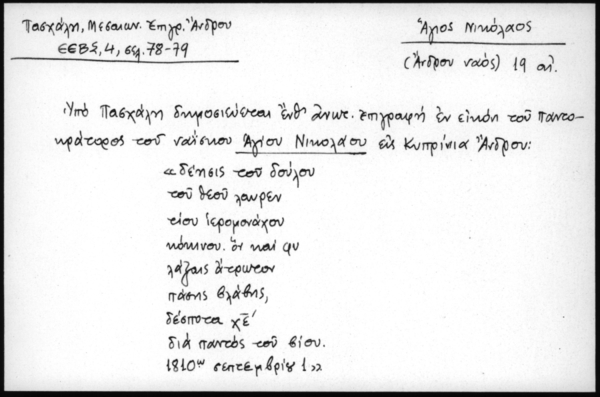 Πασχάλη, Μεσαιων. Ἐπιγρ. Ἄνδρου
ΕΕΒΣ, 4, σελ. 78-79
Ἅγιος Νικόλαος
(Ἄνδρου ναὸς) 19 αἰ.
Ὑπὸ Πασχάλη δημοσιεύεται ἔνθ' ἀνωτ. ἐπιγραφὴ ἐν εἰκόνι τοῦ Παντο-
κράτορος τοῦ ναΐσκου Ἁγίου Νικολάου εἰς Κυπρίνια Ἄνδρου:
« δέησις τοῦ δούλου
τοῦ θεοῦ λαυρεν
τίου ἱερομονάχου
κόκινου. ὃν καὶ φυ
λάξαις ἄτρωτον
πάσης βλάβης,
δέσποτα χε
διὰ παντὸς τοῦ βίου.
1810ῳ σεπτεμβρίῳ 1 »